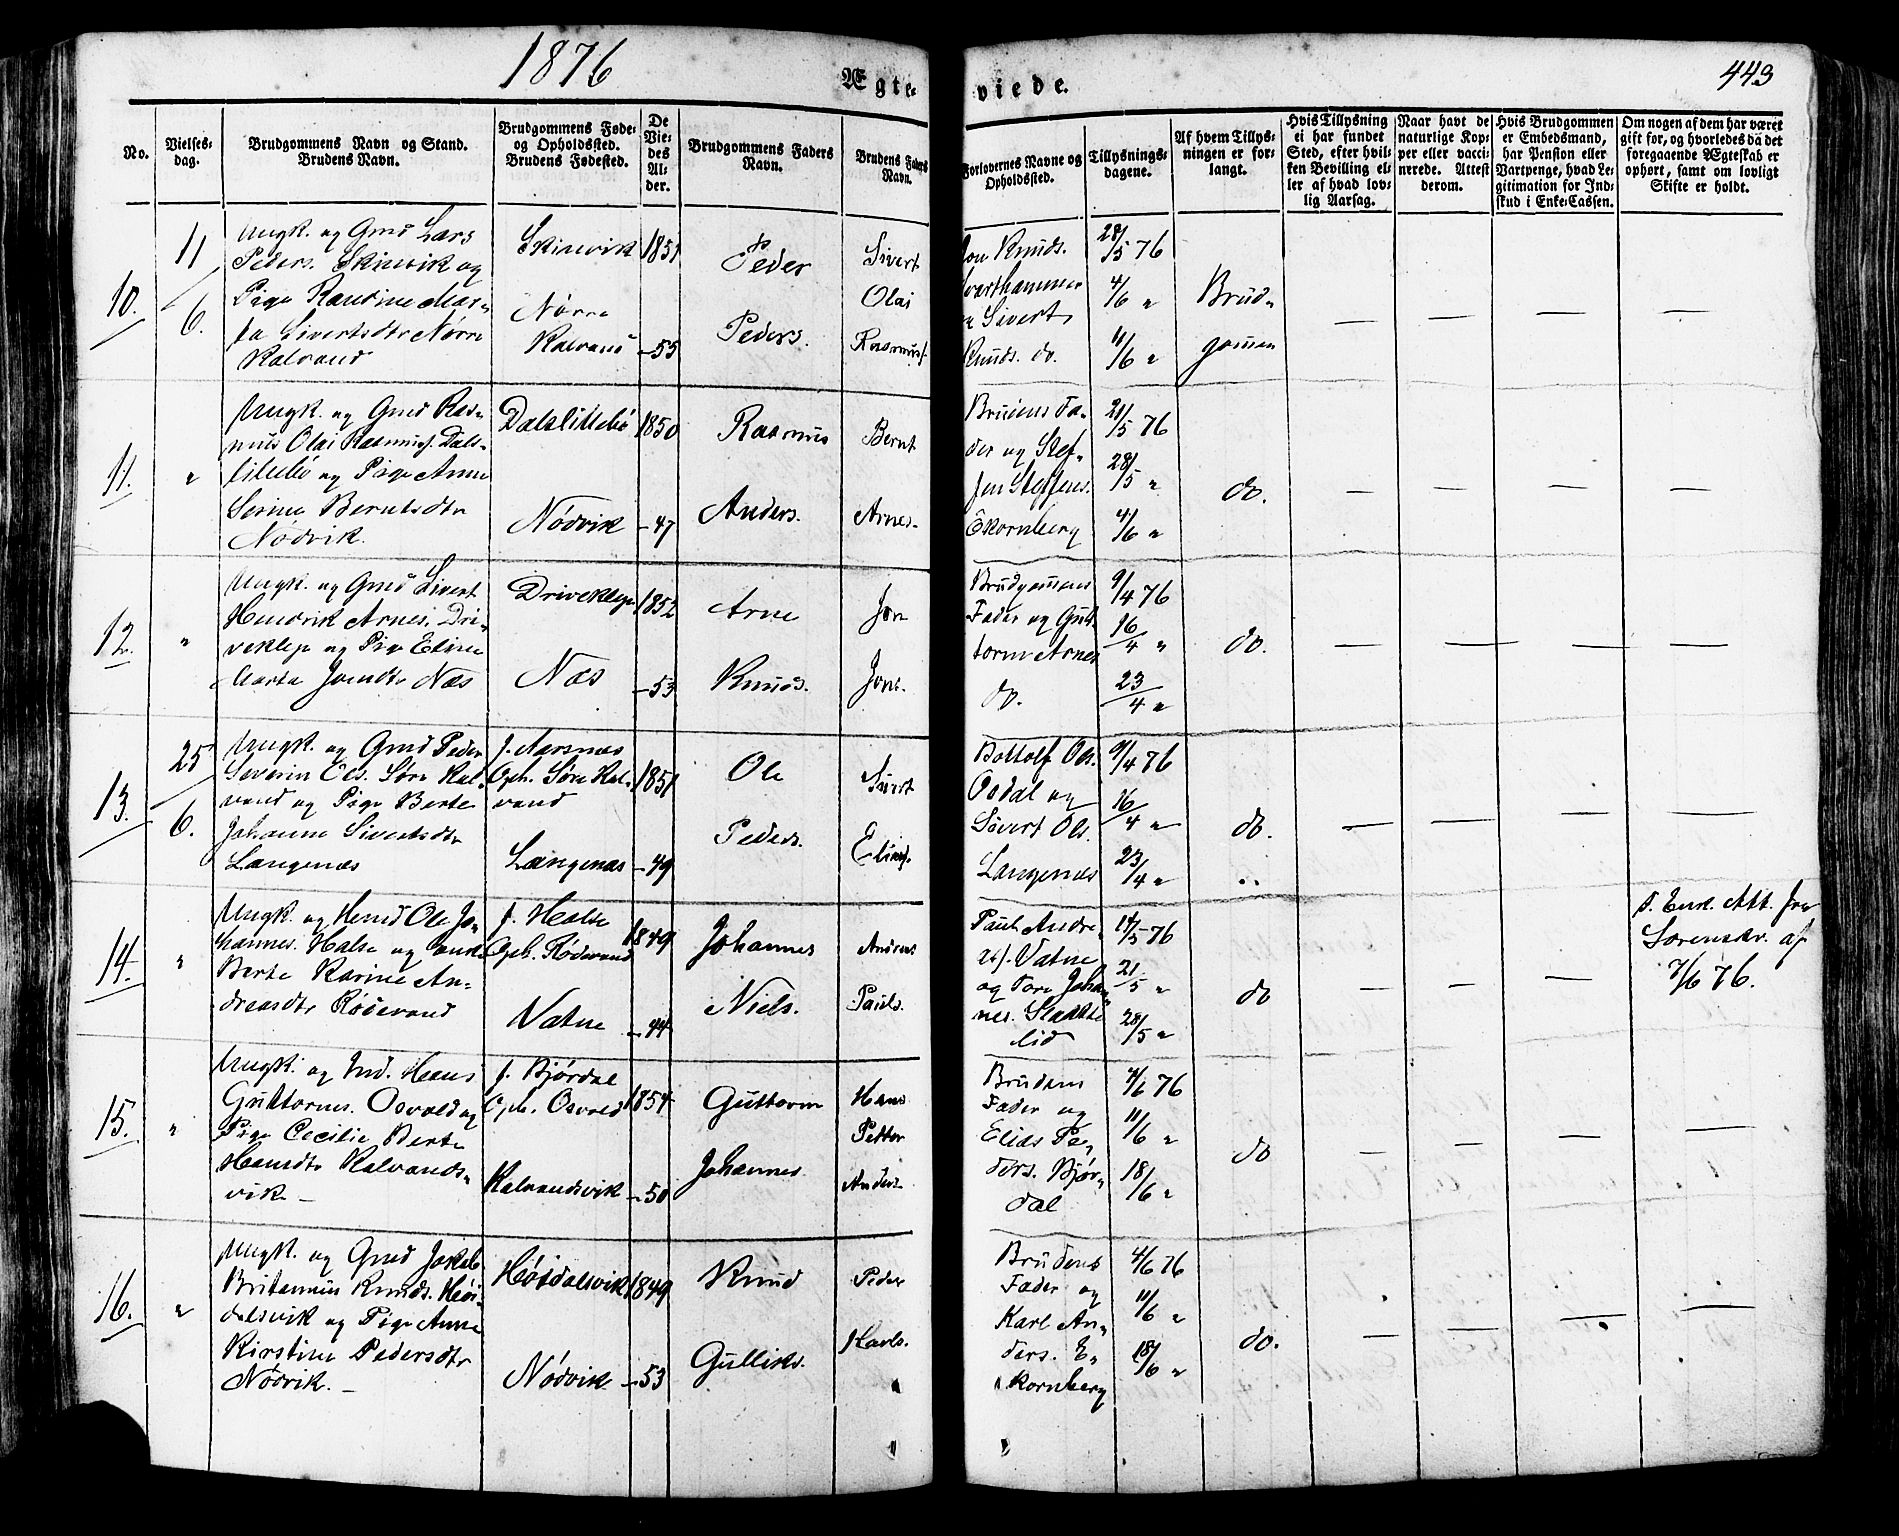 1876
443
Ægte-
viede.
No.
Vielses-
dag.
Brudgommens Navn og Stand.
Brudens Navn.
Brudgommens Føde-
og Opholdssted.
Brudens Fødested.
De
Vie-
des
Al-
der.
Brudgommens Faders
Navn.
Brudens Faders
Navn.
Forlovernes Navne og
Opholdssted.
Tillysnings-
dagene.
Af hvem Tillys-
ningen er for-
langt.
Hvis Tillysning
ei har fundet
Sted, efter hvil-
ken Bevilling el-
ler af hvad lov-
lig Aarsag.
Naar havt de
naturlige Kop-
per eller vacci-
nerede. Attest
derom.
Hvis Brudgommen
er Embedsmand,
har Pension eller
Vartpenge, hvad Le-
gitimation for Ind-
skud i Enke-Cassen.
Om nogen af dem har været
gift før, og hvorledes da det
foregaaende Ægteskab er
ophørt, samt om lovligt
Skifte er holdt.
10.
11/6.
Ungk. og Gmd Lars
Peders. Skinvik og
Pige Randine Mar-
ta Sivertsdtr Nørre
Kalvand
Skinvik
Nørre
Kalvand
1851
-55
Peder
Peders.
Sivert
Olai
Rasmusf.
Jon Knuds.
Svarthammer
og Sivert
Knuds. do.
28/5 76
4/6 "
11/6 "
Brud-
gommen
— — — —
11.
"
Ungk. og Gmd Ras-
mus Olai Rasmusf. Dals-
lillebø og Pige Anne
Serine Berntsdtr
Nødvik.
Dalslillebø
Nødvik
1850
-47
Rasmus
Anders.
Bernt
Arnes.
Brudens Fa-
der og Stef-
fen Steffens.
Ekornberg
21/5 76
28/5 "
4/6 "
do.
— — — —
12.
"
Ungk. og Gmd Sivert
Hendrik Arnes. Dri-
veklep og Pige Eline
Marta Jonsdtr Næs
Driveklep
Næs
1852
-53
Arne
Knuds.
Jon
Jons.
Brudgommens
Fader og Gut-
torm Arnes
do.
9/4 76
16/4 "
23/4 "
do.
— — — —
13.
25/6.
Ungk. og Gmd Peder
Severin Ols. Søre Kal-
vand og Pige Berte
Johanne Sivertsdtr
Langenæs
f. Aarsnæs
Oph. Søre Kal-
vand
Langenæs
1851
-49
Ole
Peders.
Sivert
Elings.
Bottolf Ols.
Osdal og
Sivert Ols.
Langenæs
9/4 76
16/4 "
23/4 "
do.
— — — —
14.
"
Ungk. og Hmd Ole Jo-
hannes. Halse og Enke
Berte Karine An-
dreasdtr Rødevand
f. Halse
Oph. Rødevand
Vatne
1849
-44
Johannes
Niels.
Andreas
Pauls.
Paul Andre-
asf. Vatne
og Tore Johan-
nes. Slette
lid
14/5 76
21/5 "
28/5 "
do
— — —
s. Enk. Att. fra
Sorenskr. af
7/6 76.
15.
"
Ungk. og Ind. Hans
Guttormes. Osvold og
Pige Cecilie Berte
Hansdtr Kalvands-
vik. —
f. Bjørdal
Oph. Osvold
Kalvandsvik
1854
-50
Guttorm
Johannes.
Hans
Petter
Anders.
Brudens
Fader og
Elias Pe-
ders. Bjør-
dal
4/6 76
11/6 "
18/6 "
do
— — — —
16.
"
Ungk. og Gmd Jakob
Britanius Knuds. Høi-
dalsvik og Pige Anne
Kirstine Pedersdtr
Nødvik. —
Høidalsvik
Nødvik
1849
-53
Knud
Gulliks.
Peder
Karls.
Brudens
Fader og
Karl An-
ders. E-
kornberg
4/6 76
11/6 "
18/6 "
do.
— — — —